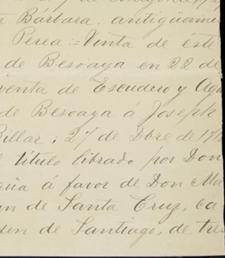 Bárbara, antiguam
Perea = Venta de este
de Besoaga en 22 de
venta de Escudero y
de Besoaga á Joseph
Villar; 27 de Dbre de
Título librado por Don
á favor de Don
de Santa Cruz, ca
den de Santiago, de tre